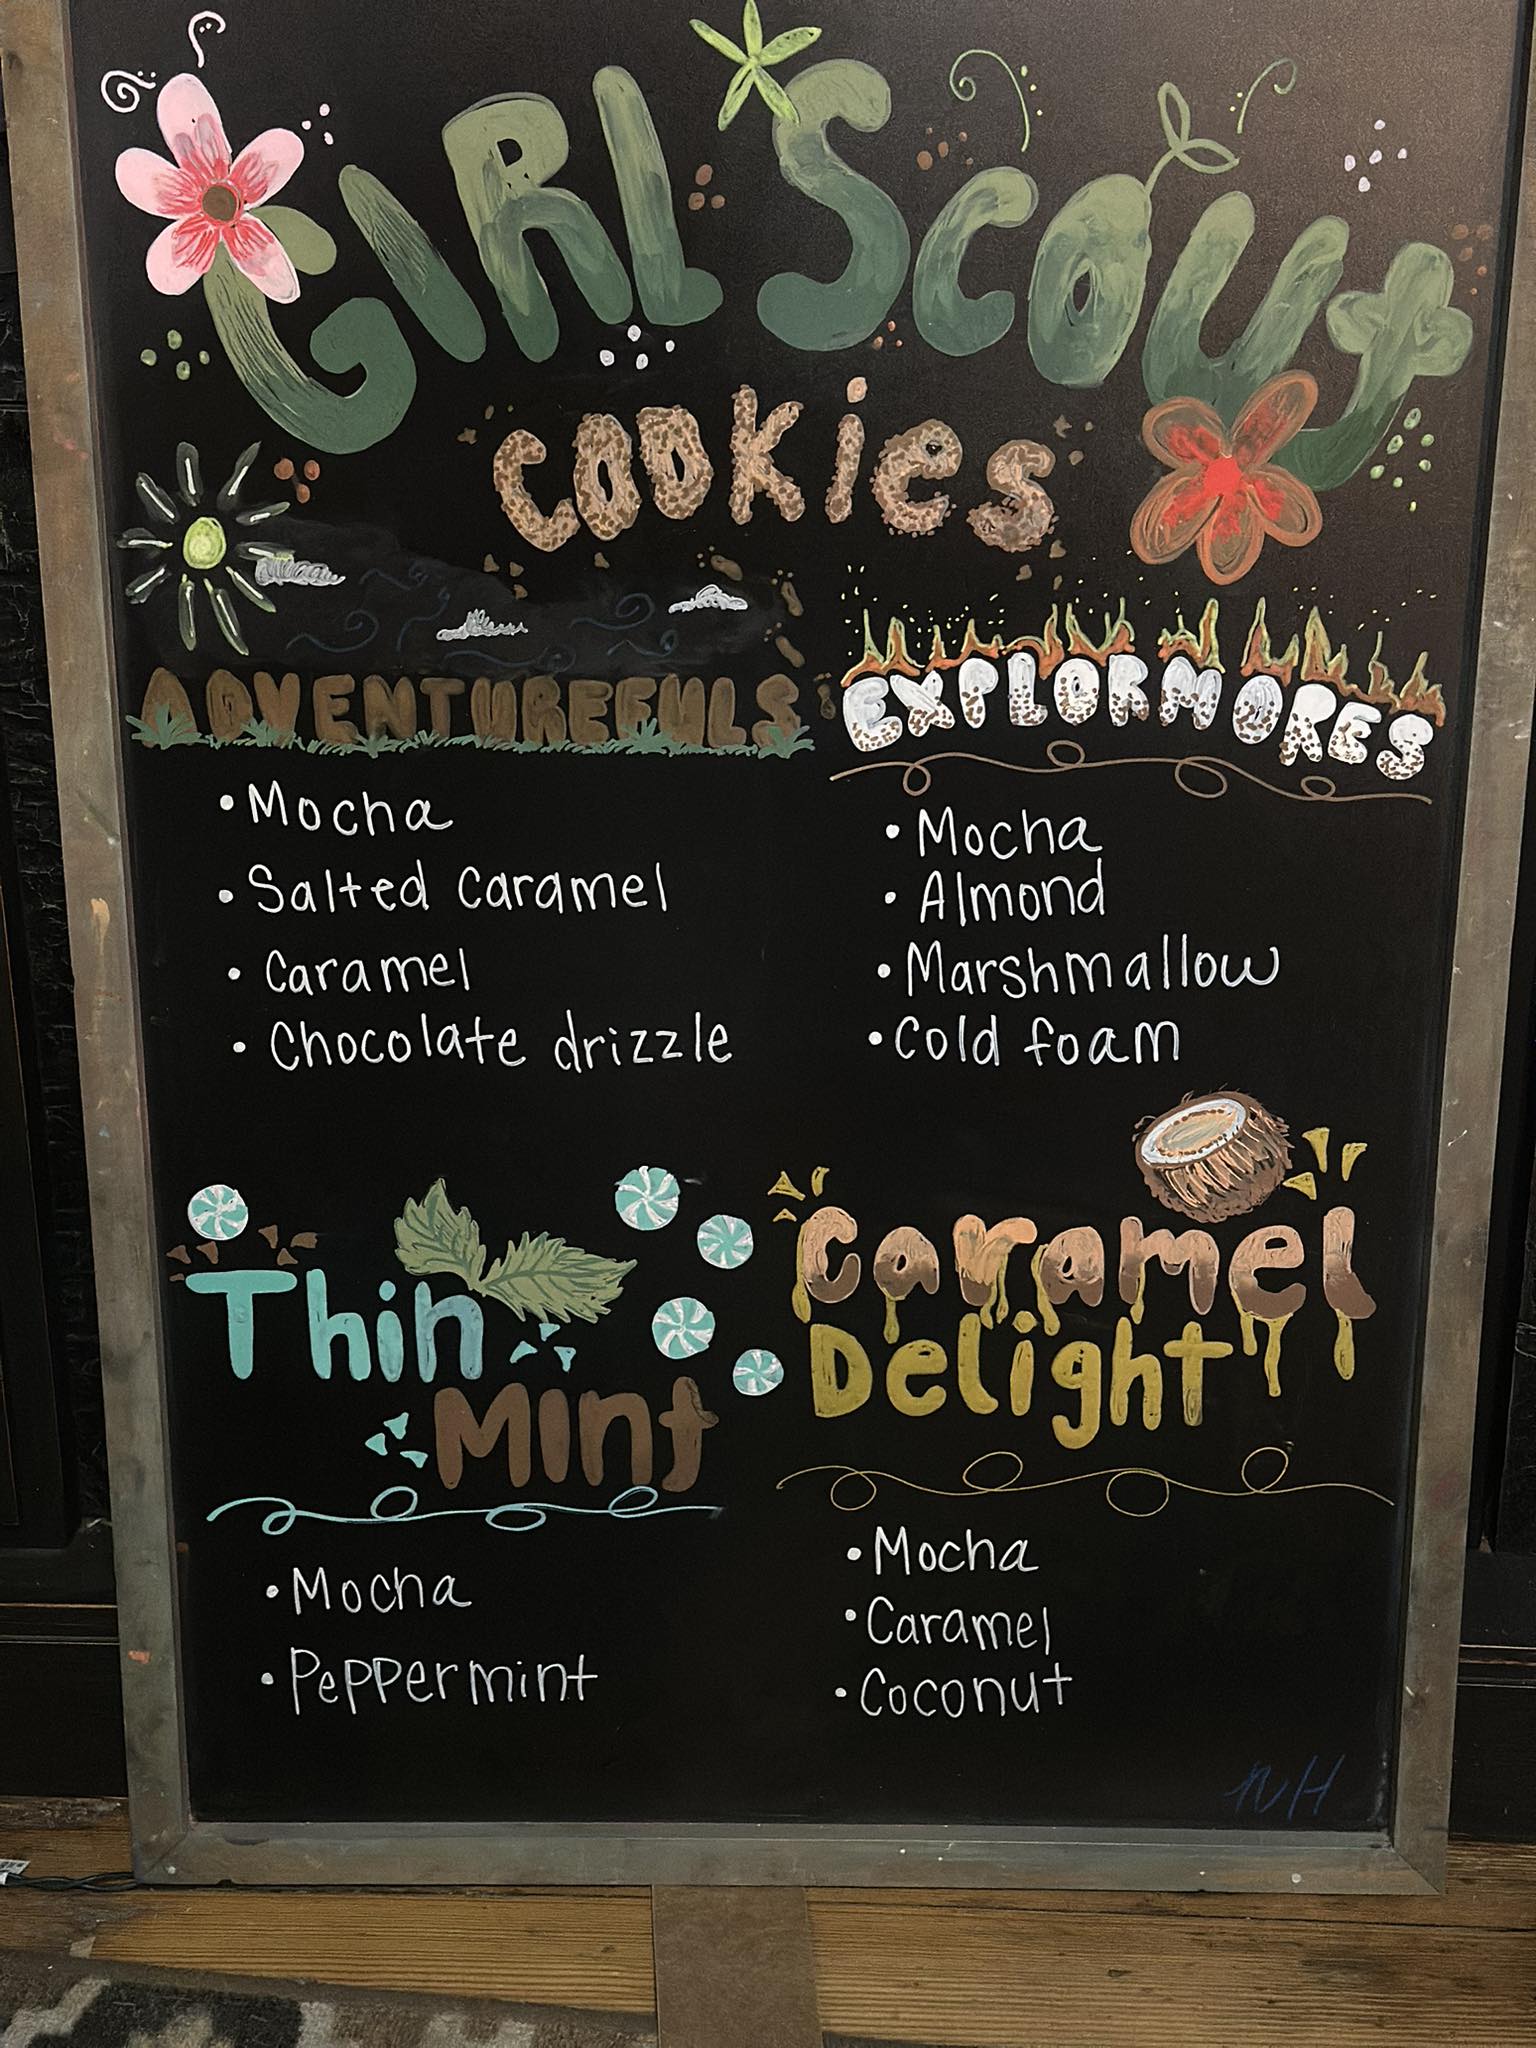 GIRL SCOUT
COOKIES
ADVENTUREFULS
• Mocha
• Salted Caramel
• Caramel
• Chocolate drizzle
EXPLORMORES
• Mocha
• Almond
• Marshmallow
• Cold foam
Thin
Mint
• Mocha
• Peppermint
Caramel
Delight
• Mocha
• Caramel
• Coconut
NH